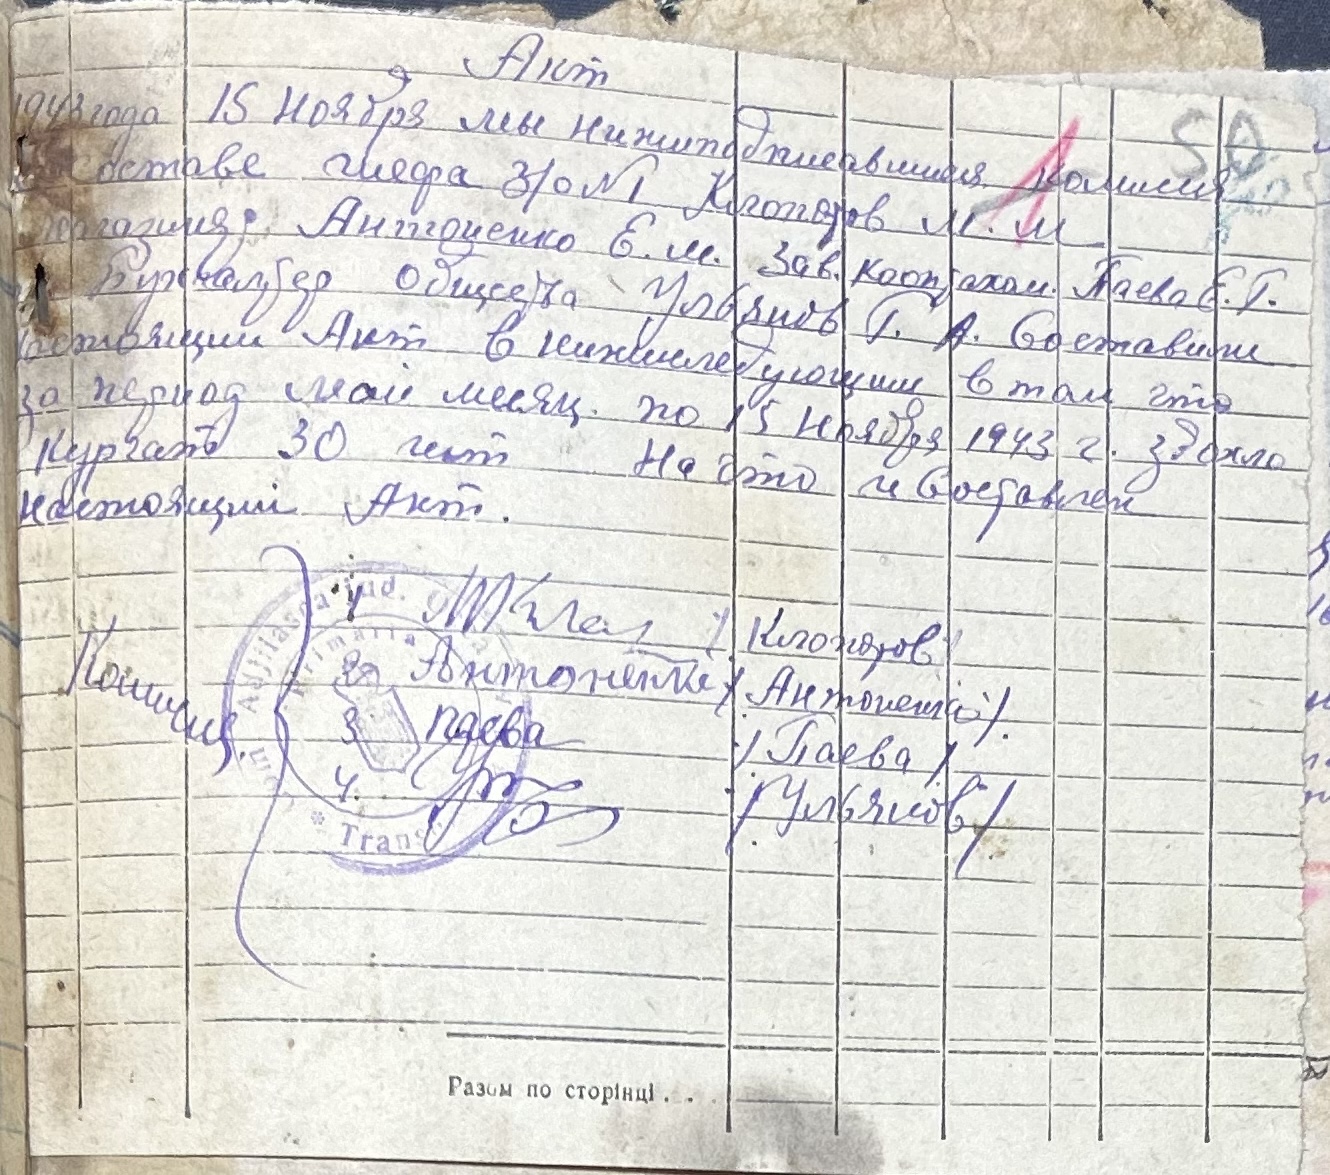 Акт
1943 года 15 Ноября мы нижиподписавшися комисия
в составе шефа З/о №1 Клопотов М. М
Антоненко Е. М. Зав. кооп ахом. Паева Е. Г.
Бухгалтер Общества Ульянов Г. А. Составили
настоящии Акт в нижиследующим в том что
за период май месяц. по 15 Ноября 1943 г. здохло
Курчатъ 30 шт На что и Составлен
настоящии Акт.
50
1
Комисия.
1 / Клопотов /
2. Антоненко / Антоненко /.
3 Паева / Паева /
4. / Ульянов /
jud.
Primaria
* Trans
Разом по сторінці . . .